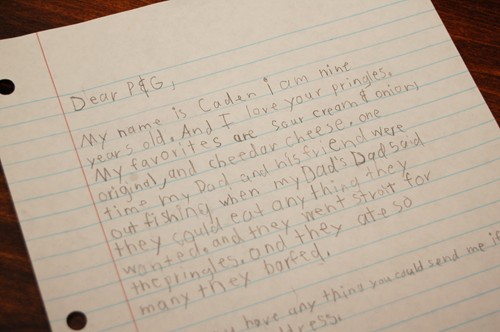 Dear P&G,
My name is Caden i am nine
years old. And I love your pringles.
My favorites are sour cream & onion,
original, and cheedar cheese. one
time my Dad and his friend were
out fishing when my Dad's Dad said
they could eat any thing they
wonted. and they went strait for
the pringles. and they ate so
many they barfed.
have any thing you could send me if